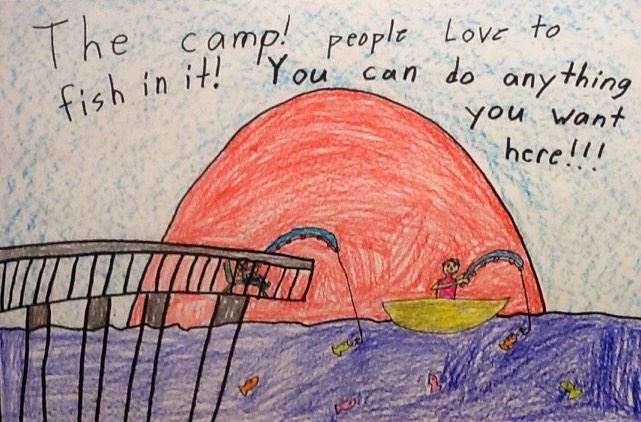 The camp! people Love to
fish in it! You can do anything
you want
here!!!